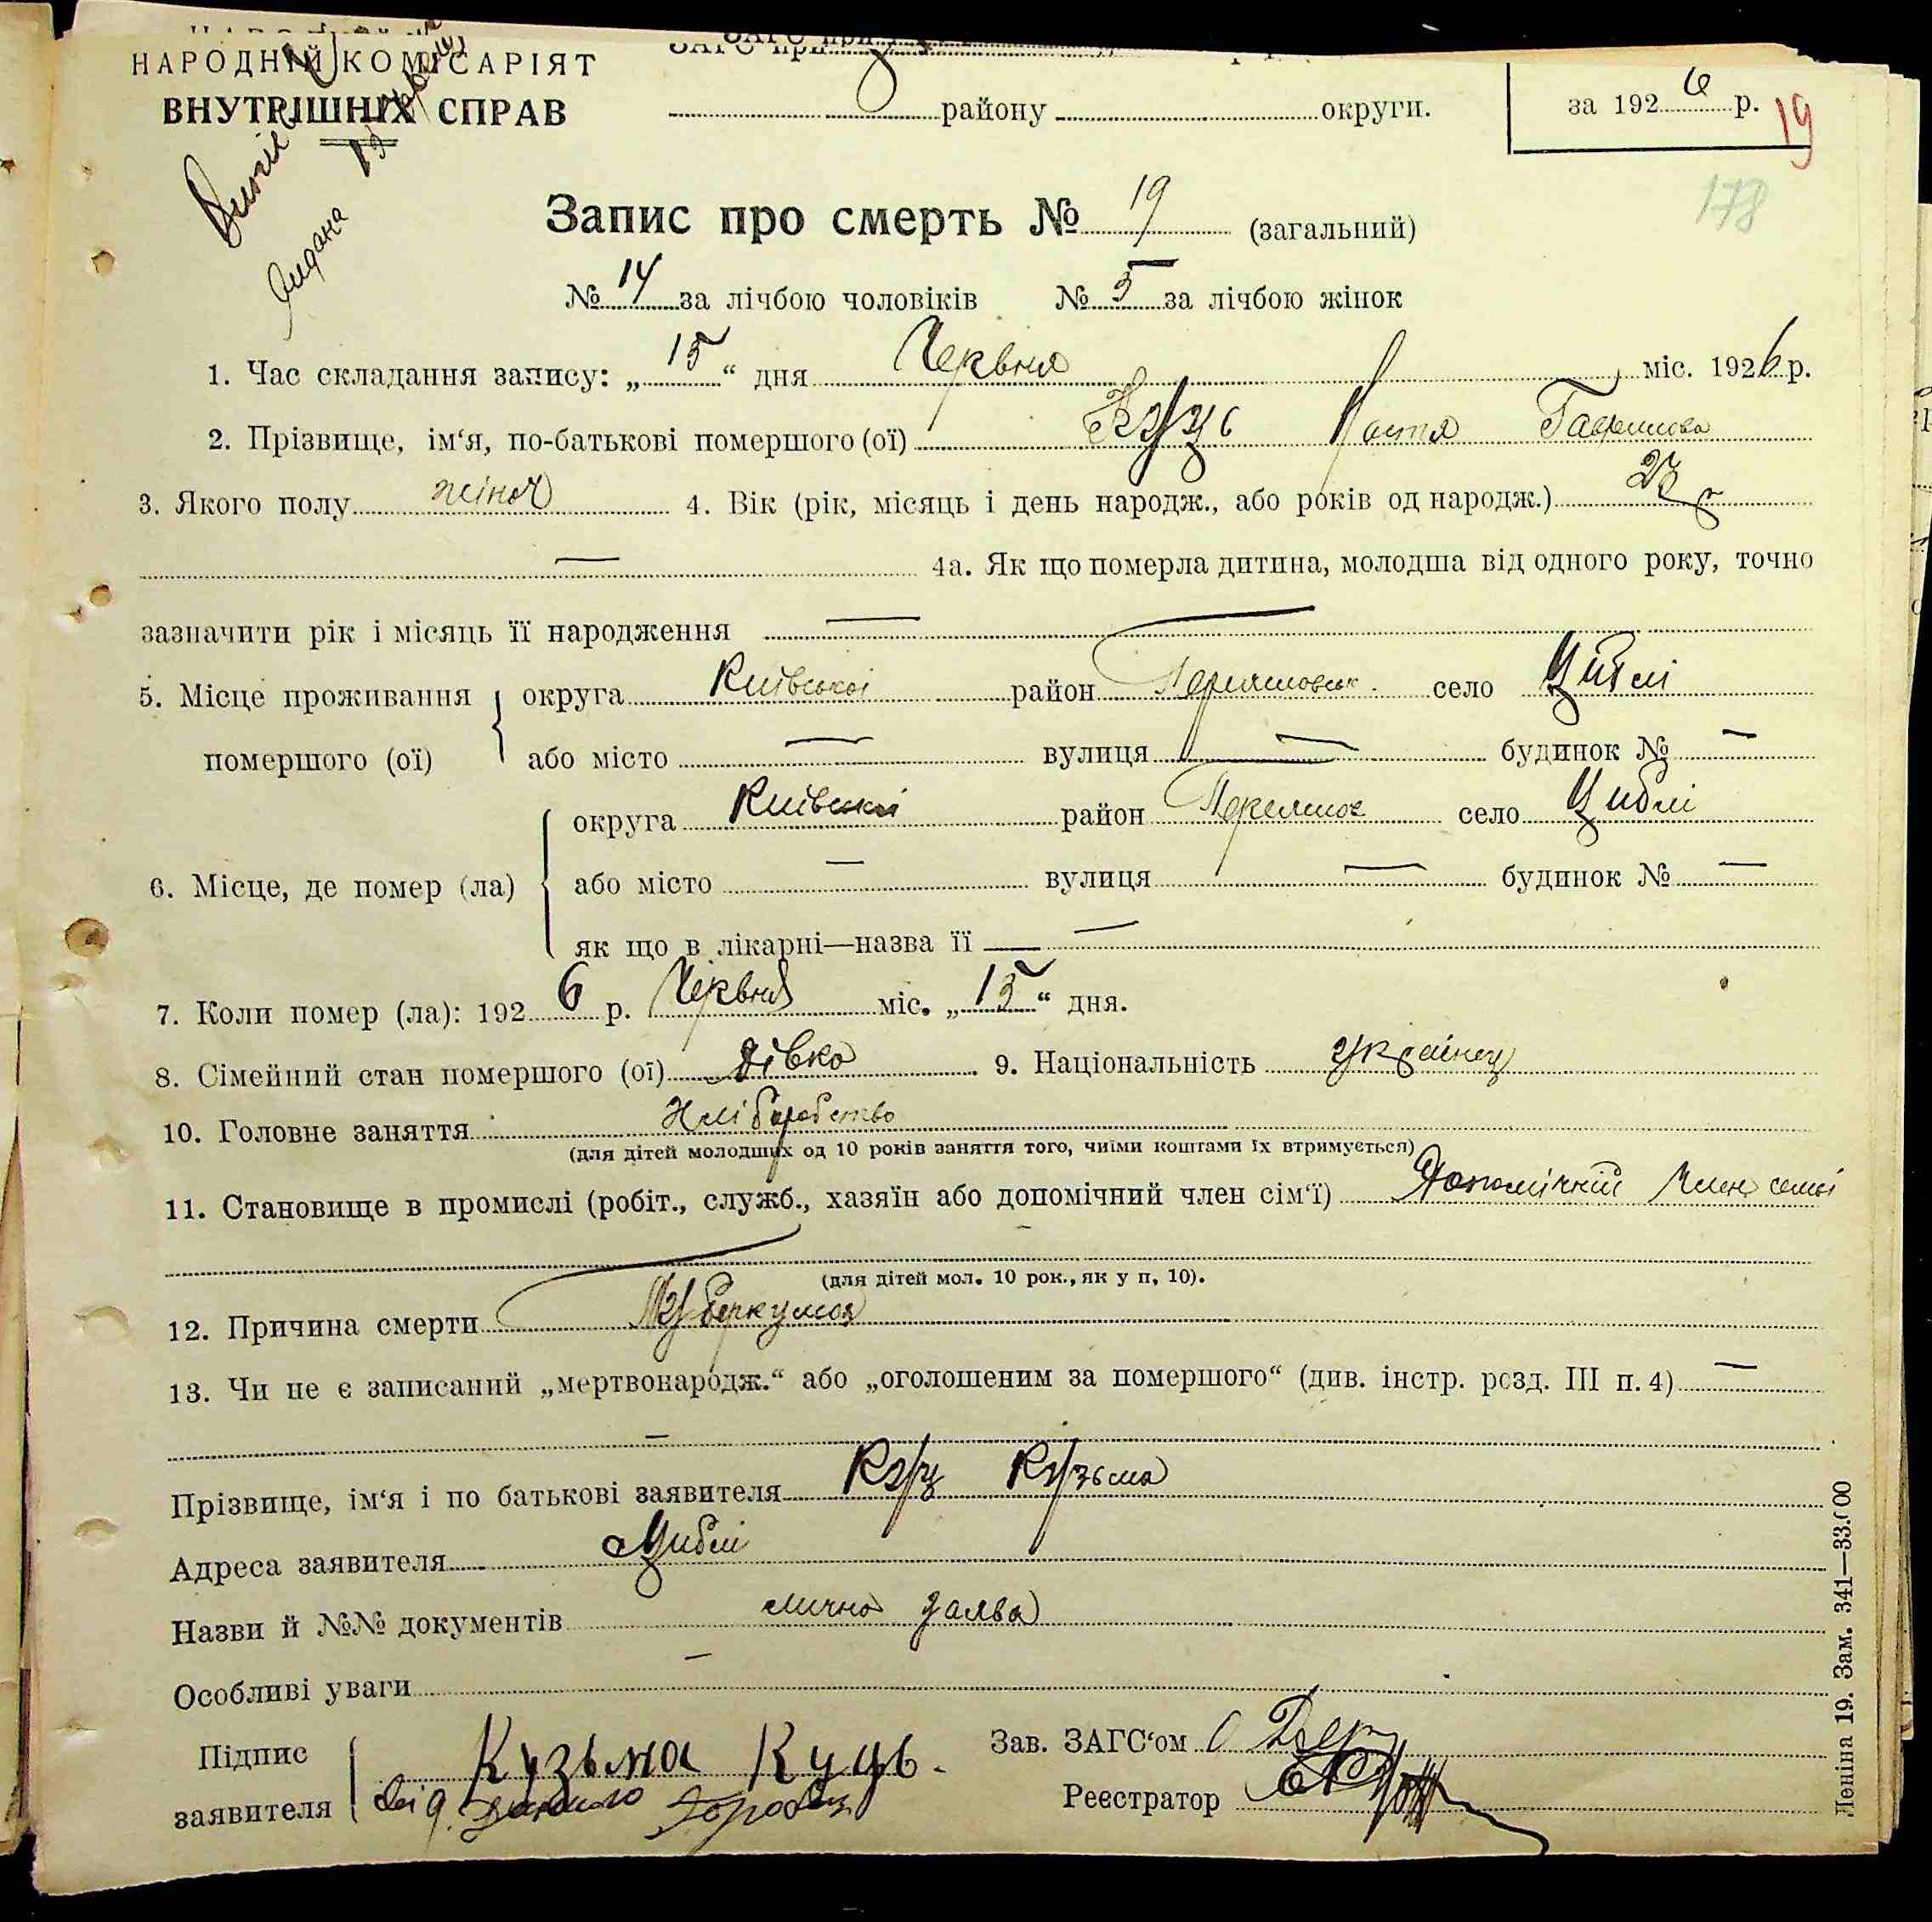 НАРОДНІЙ КОМІСАРІЯТ
ВНУТРІШНІХ СПРАВ
району округи.
за 1926 р.
19
178
Витяг
видана
Запис про смерть № 19 (загальний)
№ 14 за лічбою чоловіків № 5 за лічбою жінок
1. Час складання запису: „15“ дня Червня міс. 1926 р.
2. Прізвище, ім‘я, по-батькові помершого (ої) Куць Настя
3. Якого полу жіноч 4. Вік (рік, місяць і день народж., або років од народж.)
— 4а. Як що померла дитина, молодша від одного року, точно
зазначити рік і місяць її народження —
5. Місце проживання помершого (ої) { округа Київської район село Циблі
або місто — вулиця — будинок № —
6. Місце, де помер (ла) { округа Київської район село Циблі
або місто — вулиця — будинок № —
як що в лікарні—назва її —
7. Коли помер (ла): 1926 р. Червня міс. „15“ дня.
8. Сімейний стан помершого (ої) дівка. 9. Національність українц
10. Головне заняття Хліборобство
(для дітей молодших од 10 років заняття того, чиїми коштами їх втримується)
11. Становище в промислі (робіт., служб., хазяїн або допомічний член сім‘ї) Допомічний член семьї
(для дітей мол. 10 рок., як у п. 10).
12. Причина смерти Туберкульоз
13. Чи не є записаний „мертвонародж.“ або „оголошеним за помершого“ (див. інстр. розд. III п. 4) —
—
Прізвище, ім‘я і по батькові заявителя Куц Кузьма
Адреса заявителя с Циблі
Назви й №№ документів лична заява
Особливі уваги —
Підпис заявителя { Кузьма Куць.
Зав. ЗАГС‘ом
Реєстратор
Леніна 19. Зам. 341—33.000